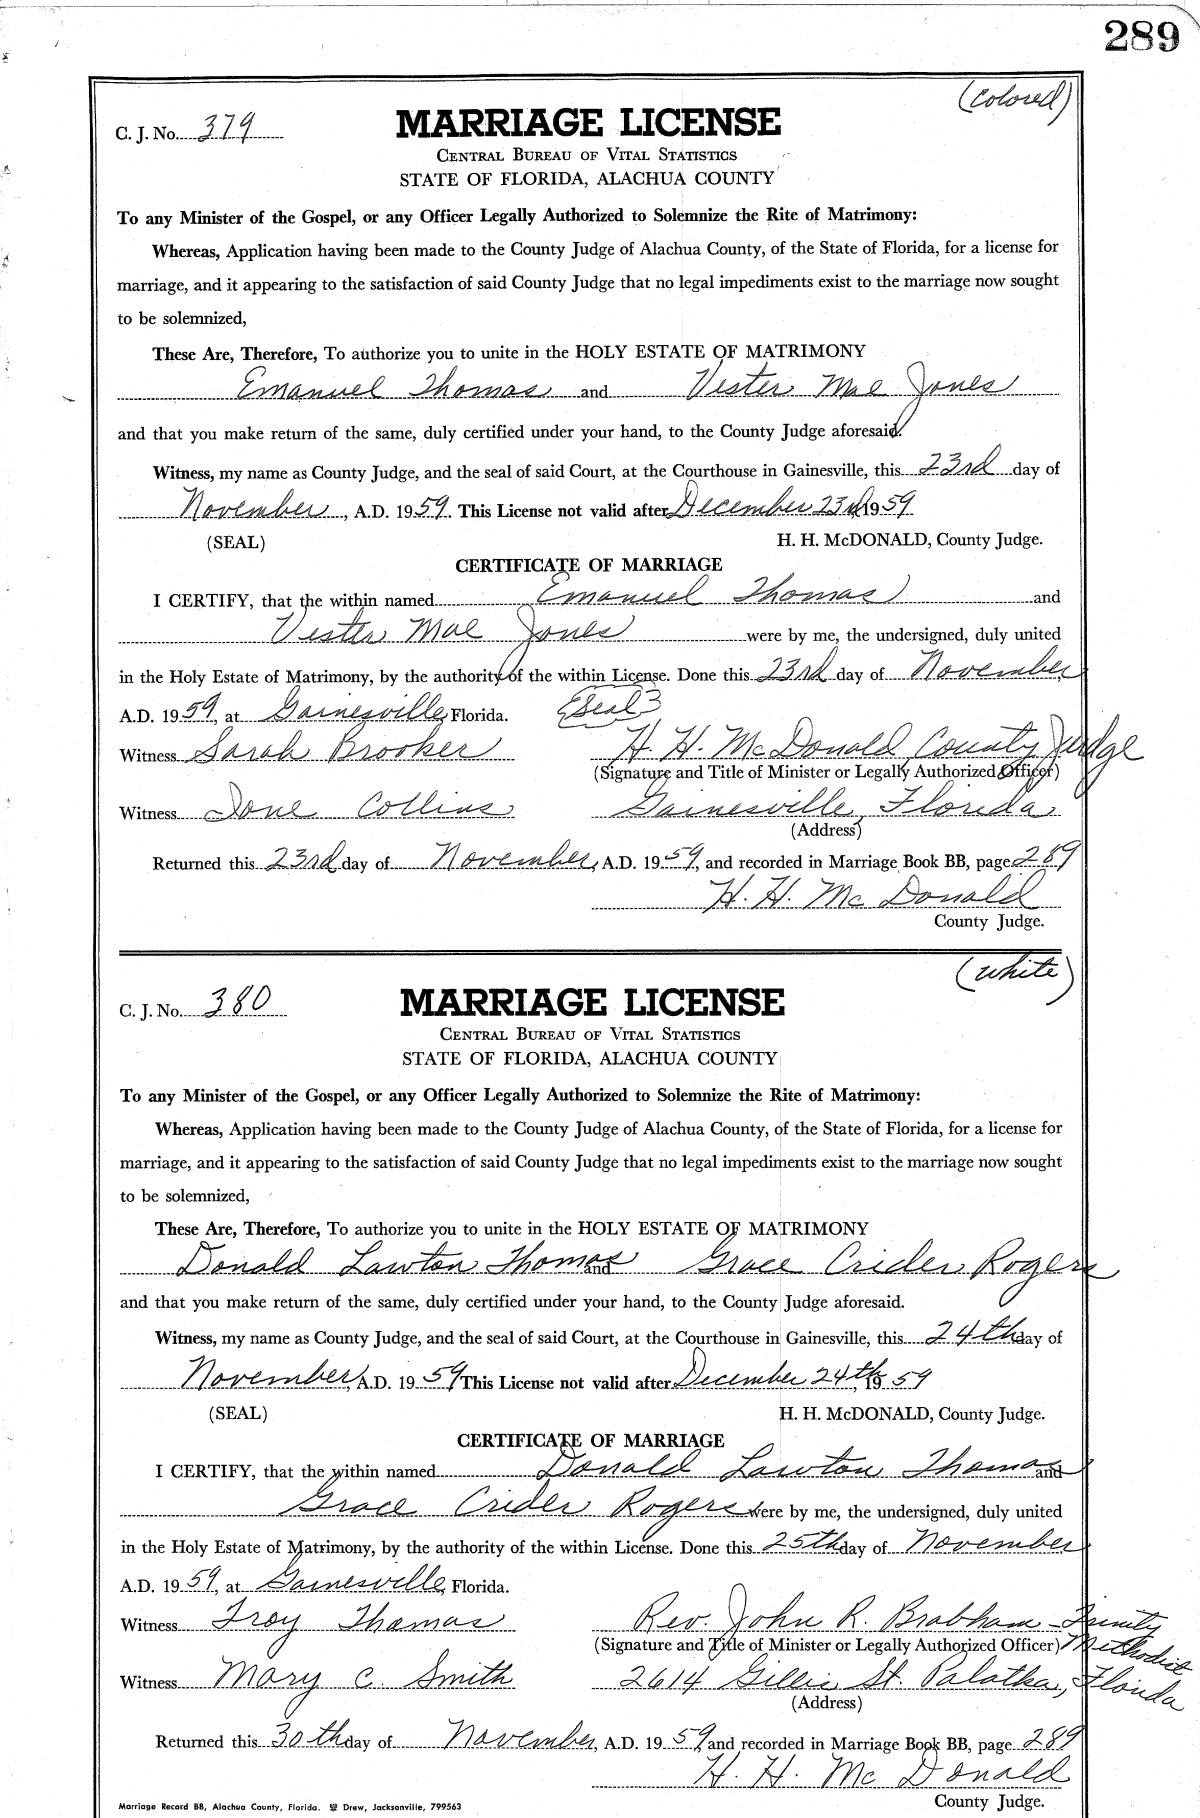 289
(colored)
C. J. No. 379
MARRIAGE LICENSE
CENTRAL BUREAU OF VITAL STATISTICS
STATE OF FLORIDA, ALACHUA COUNTY
To any Minister of the Gospel, or any Officer Legally Authorized to Solemnize the Rite of Matrimony:
Whereas, Application having been made to the County Judge of Alachua County, of the State of Florida, for a license for
marriage, and it appearing to the satisfaction of said County Judge that no legal impediments exist to the marriage now sought
to be solemnized,
These Are, Therefore, To authorize you to unite in the HOLY ESTATE OF MATRIMONY
Emanuel Thomas and Vester Mae Jones
and that you make return of the same, duly certified under your hand, to the County Judge aforesaid.
Witness, my name as County Judge, and the seal of said Court, at the Courthouse in Gainesville, this 23rd day of
November, A.D. 1959. This License not valid after December 23rd, 1959
(SEAL) H. H. McDONALD, County Judge.
CERTIFICATE OF MARRIAGE
I CERTIFY, that the within named Emanuel Thomas and
Vester Mae Jones were by me, the undersigned, duly united
in the Holy Estate of Matrimony, by the authority of the within License. Done this 23rd day of November
A.D. 1959, at Gainesville, Florida. Seal
Witness Sarah Brooker H. H. McDonald County Judge
(Signature and Title of Minister or Legally Authorized Officer)
Witness Ione Collins Gainesville, Florida
(Address)
Returned this 23rd day of November, A.D. 1959, and recorded in Marriage Book BB, page 289
H. H. McDonald
County Judge.
(white)
C. J. No. 380
MARRIAGE LICENSE
CENTRAL BUREAU OF VITAL STATISTICS
STATE OF FLORIDA, ALACHUA COUNTY
To any Minister of the Gospel, or any Officer Legally Authorized to Solemnize the Rite of Matrimony:
Whereas, Application having been made to the County Judge of Alachua County, of the State of Florida, for a license for
marriage, and it appearing to the satisfaction of said County Judge that no legal impediments exist to the marriage now sought
to be solemnized,
These Are, Therefore, To authorize you to unite in the HOLY ESTATE OF MATRIMONY
Donald Lawton Thomas and Grace Crider Rogers
and that you make return of the same, duly certified under your hand, to the County Judge aforesaid.
Witness, my name as County Judge, and the seal of said Court, at the Courthouse in Gainesville, this 24th day of
November, A.D. 1959 This License not valid after December 24th, 1959
(SEAL) H. H. McDONALD, County Judge.
CERTIFICATE OF MARRIAGE
I CERTIFY, that the within named Donald Lawton Thomas and
Grace Crider Rogers were by me, the undersigned, duly united
in the Holy Estate of Matrimony, by the authority of the within License. Done this 25th day of November
A.D. 1959, at Gainesville, Florida.
Witness Troy Thomas Rev. John R. Brabham - Trinity
(Signature and Title of Minister or Legally Authorized Officer) Methodist
Witness Mary C. Smith 2614 Gillis St. Palatka, Florida
(Address)
Returned this 30th day of November, A.D. 1959, and recorded in Marriage Book BB, page 289
H. H. McDonald
County Judge.
Marriage Record BB, Alachua County, Florida. Drew, Jacksonville, 799563